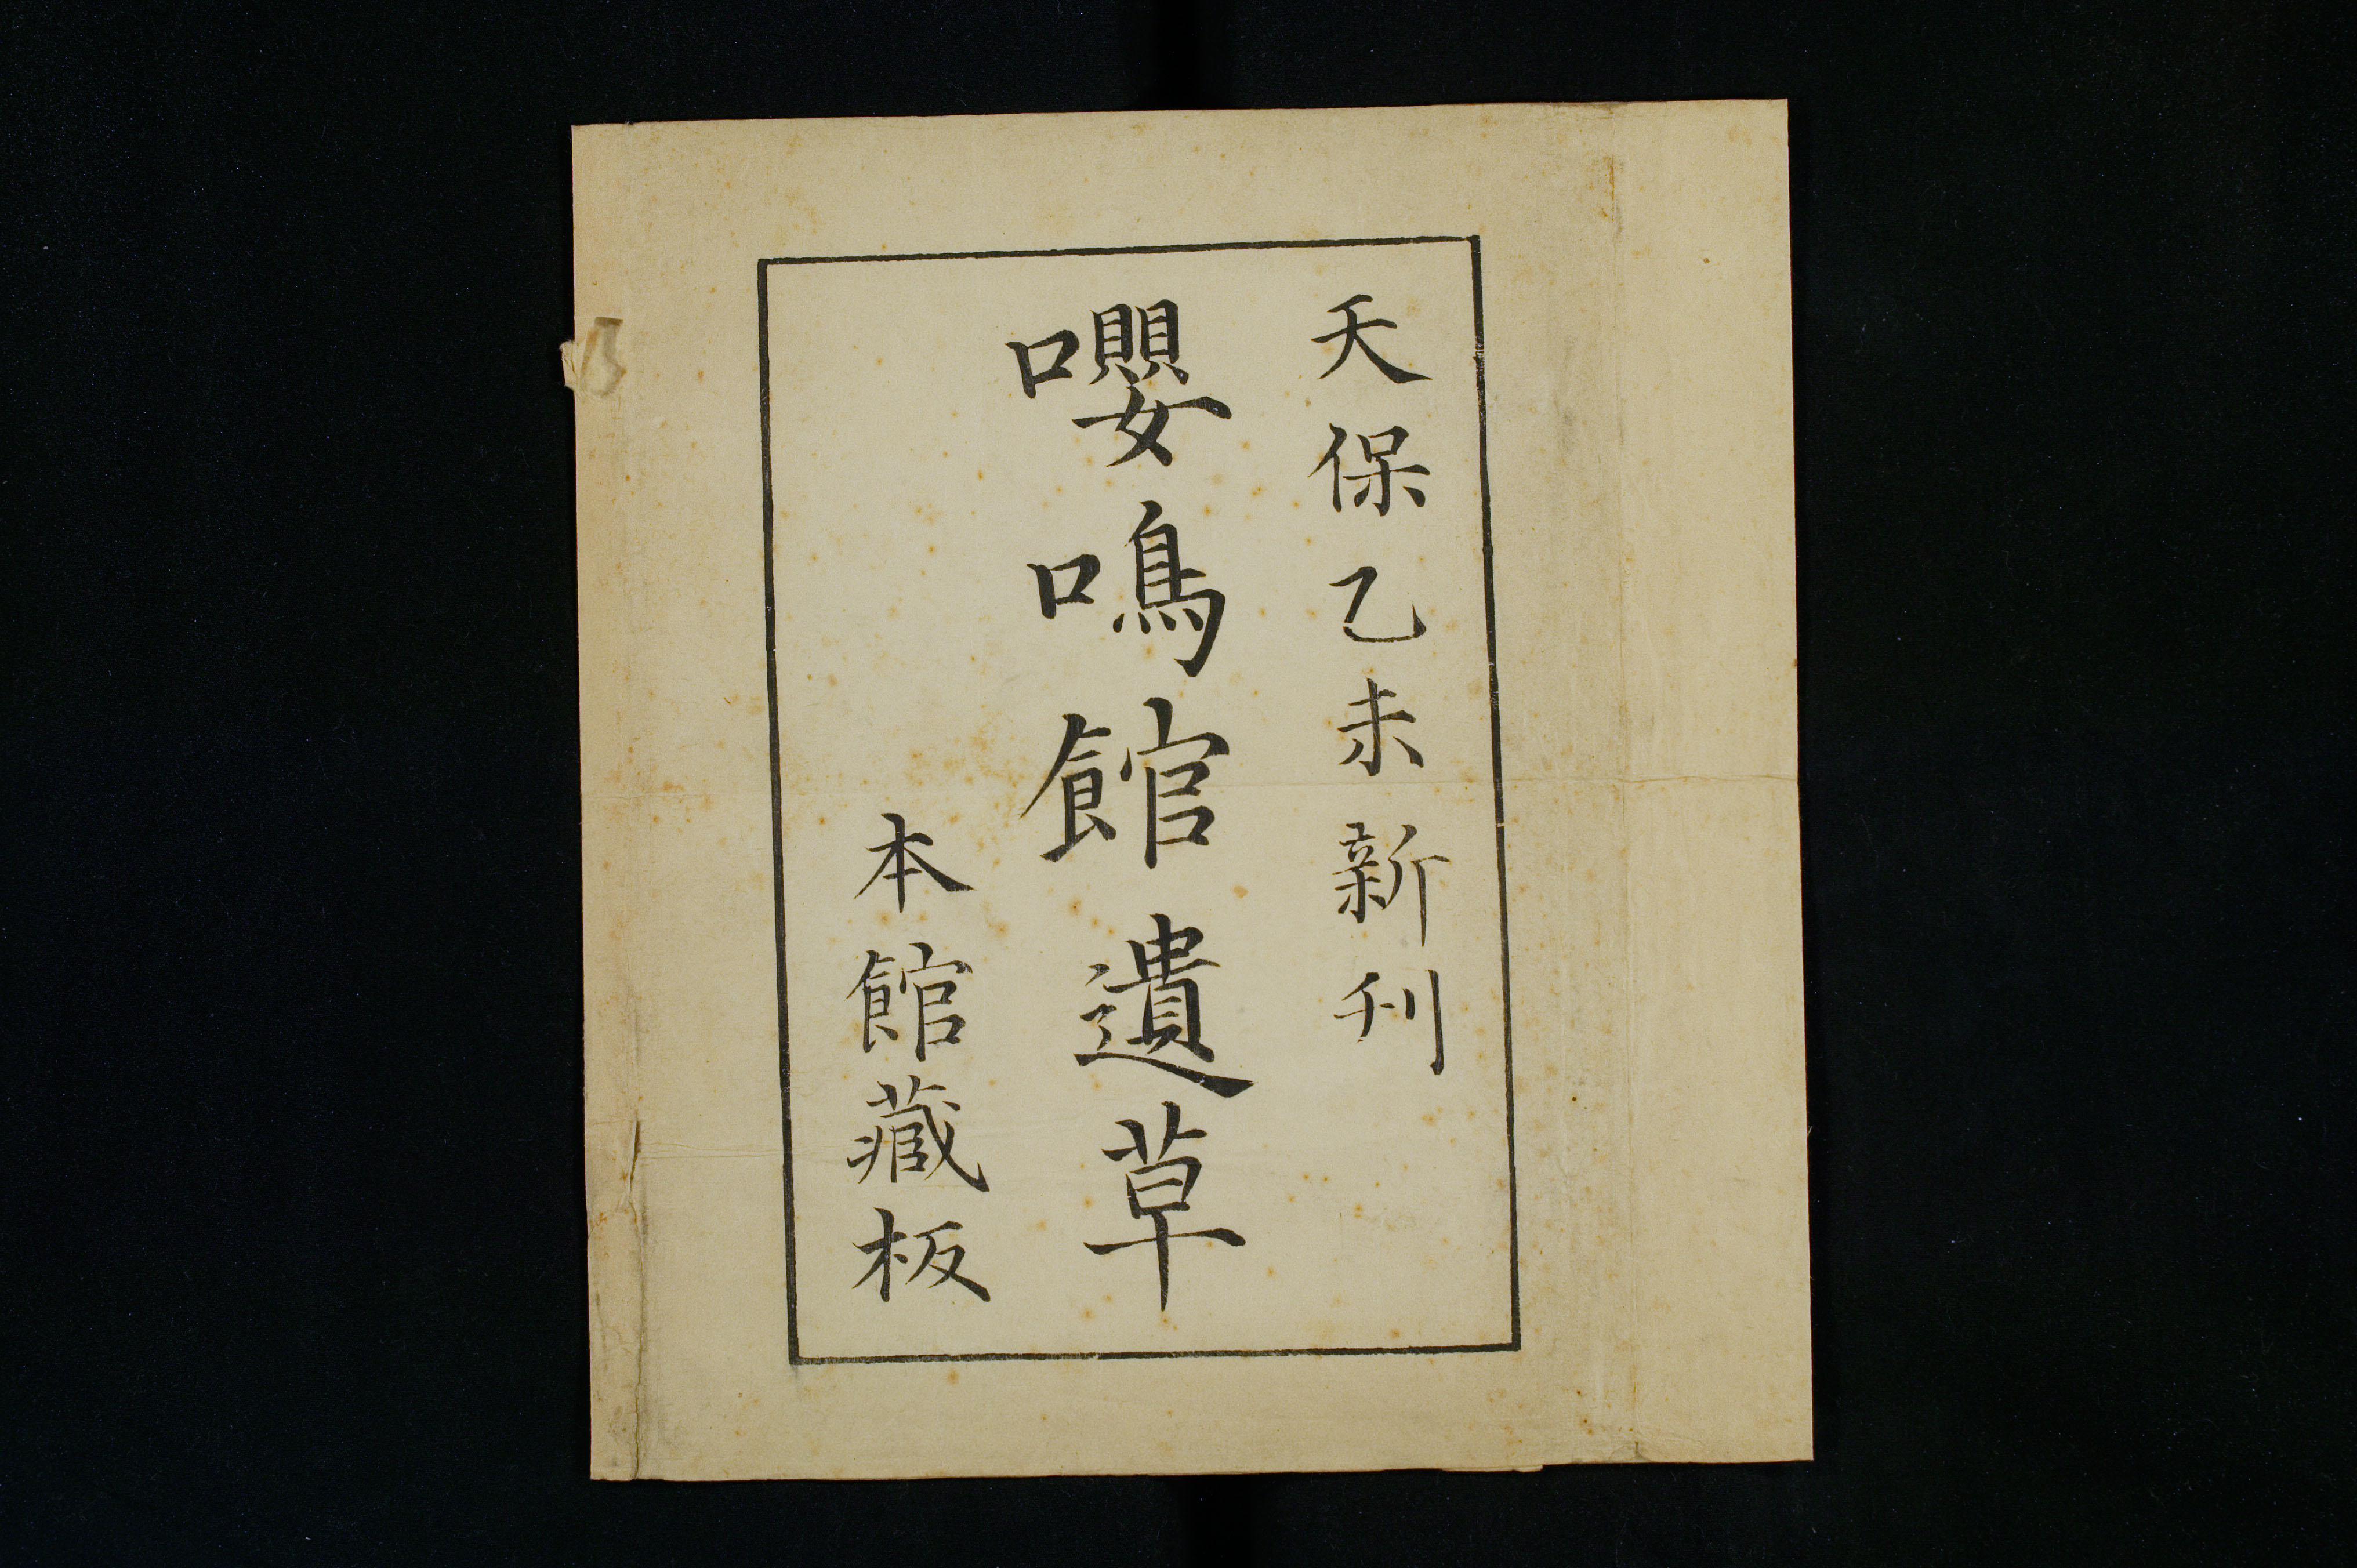 天保乙未新刊
嚶鳴館遺草
本館藏板